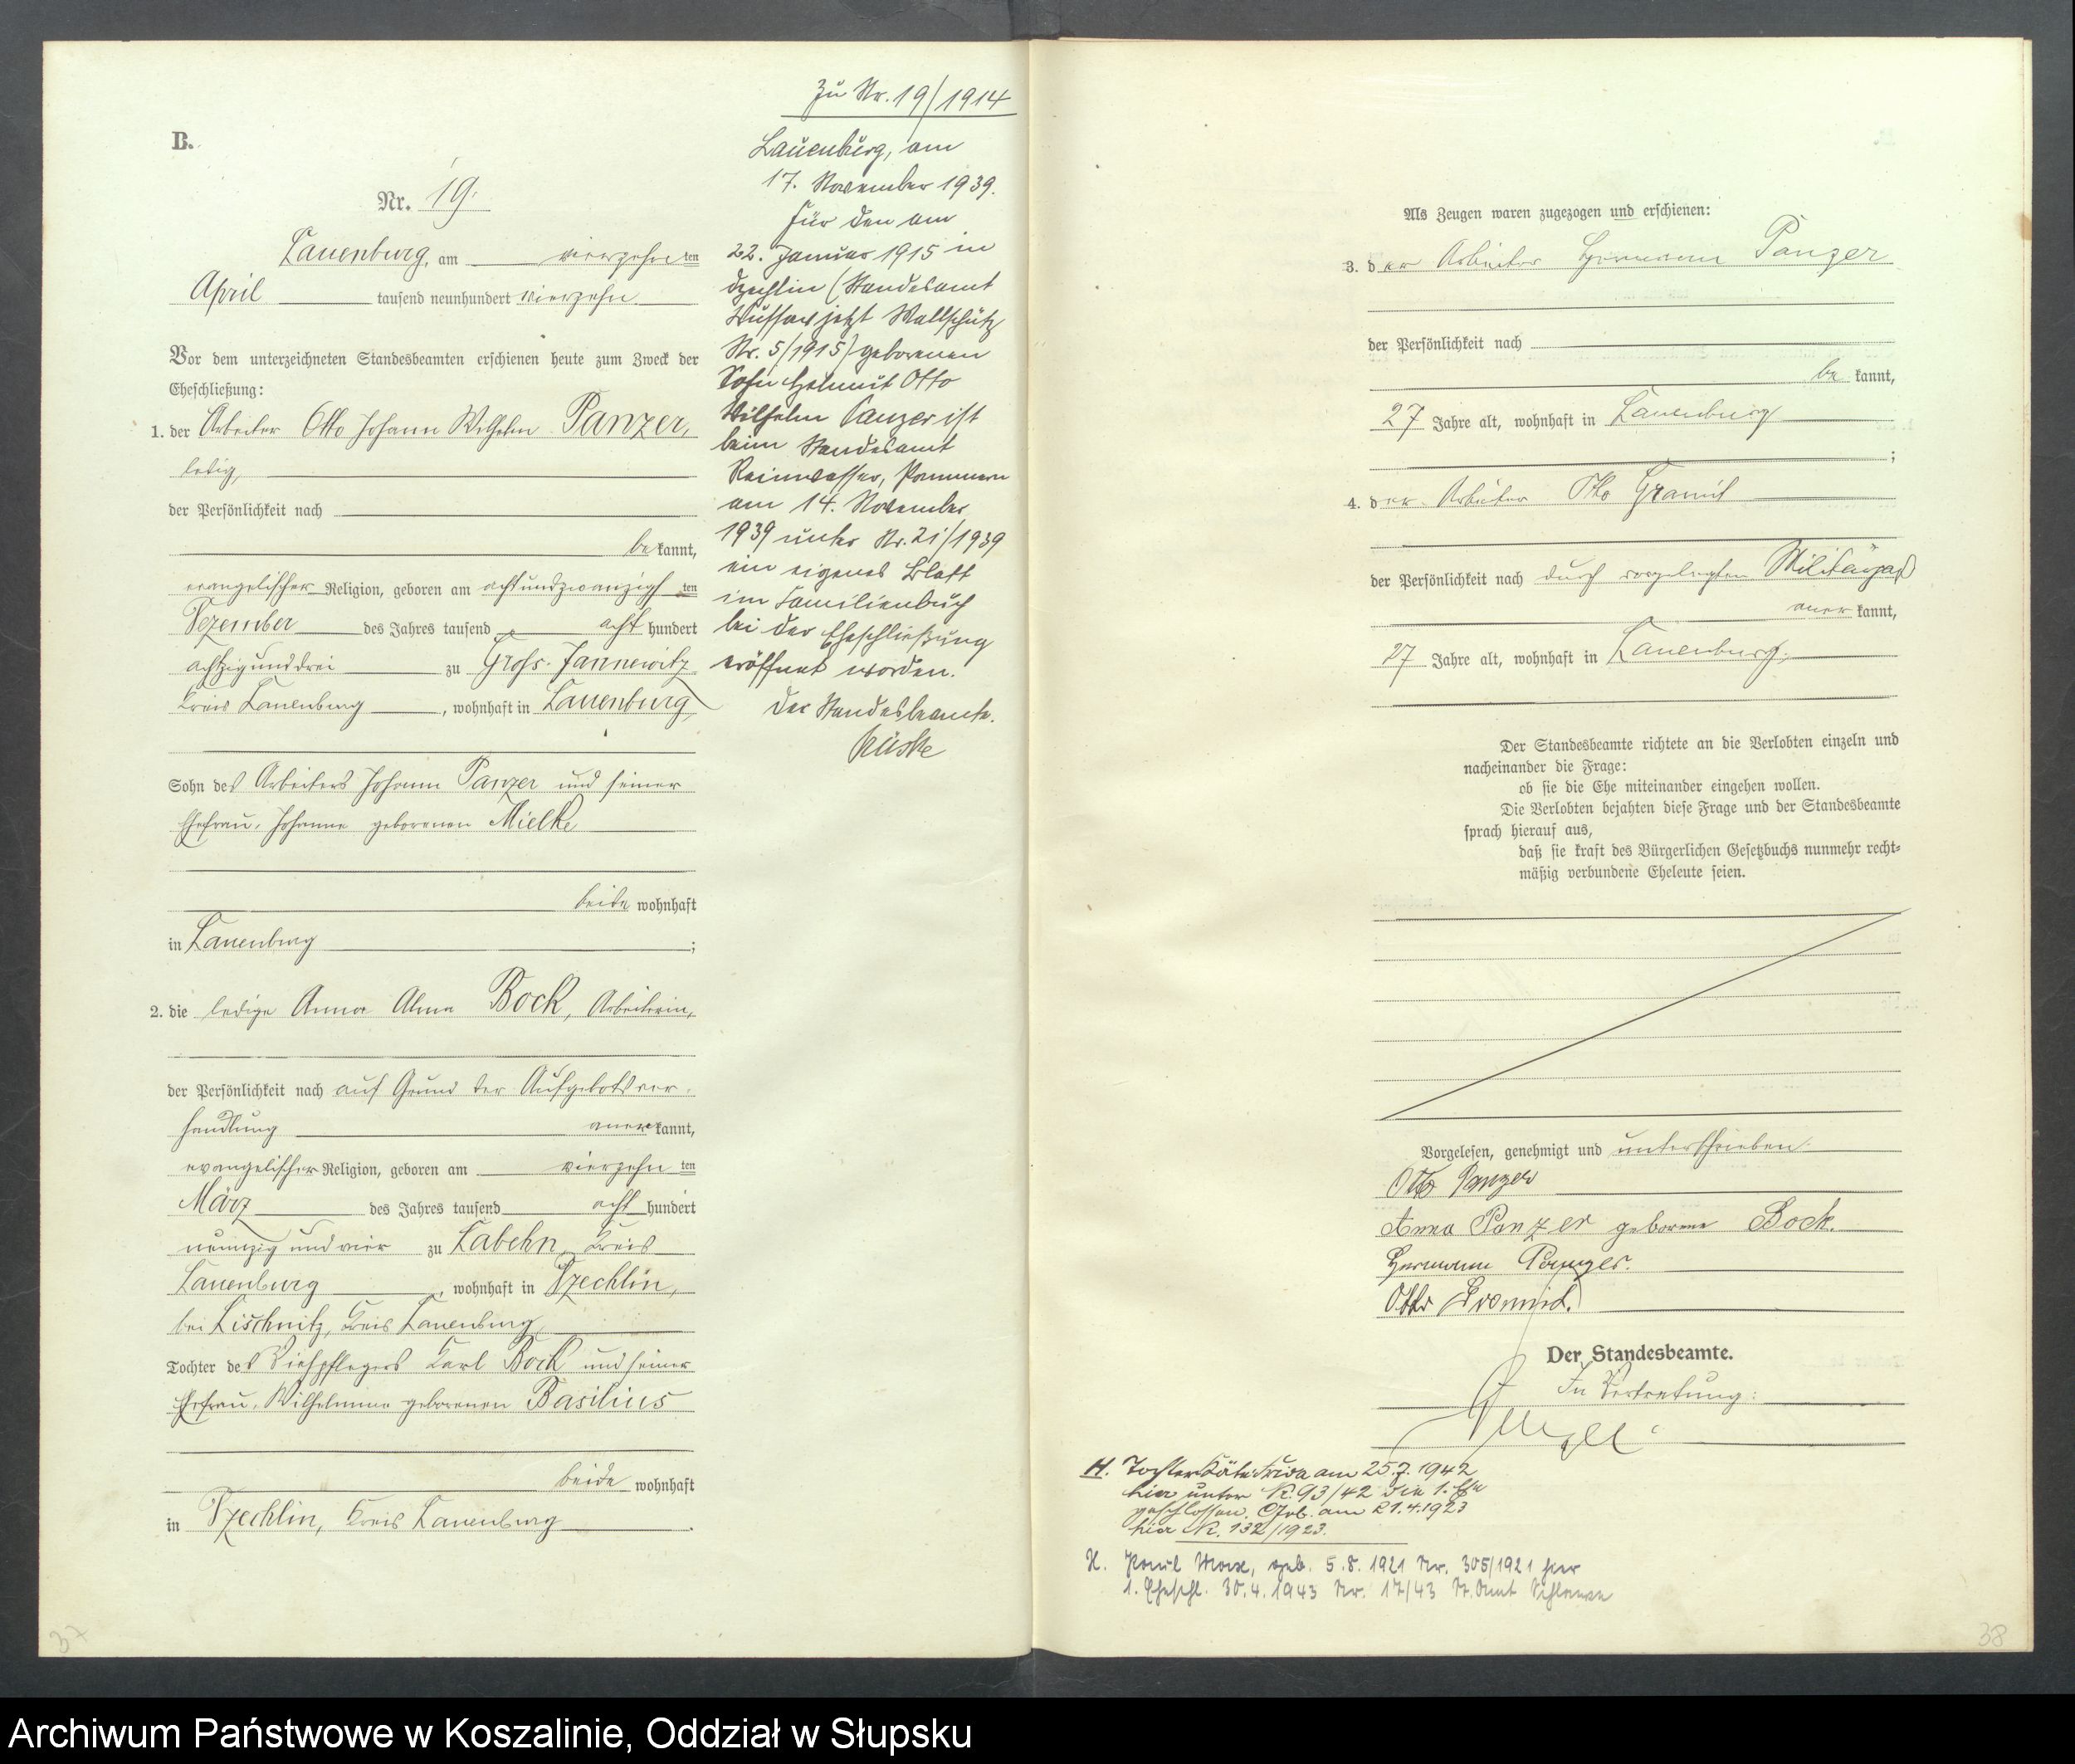 B.
Nr. 19.
Lauenburg, am vierzehnten
April tausend neunhundert vierzehn.
Vor dem unterzeichneten Standesbeamten erschienen heute zum Zweck der
Eheschließung:
1. der Arbeiter Otto Johann Wilhelm Panzer,
ledig,
der Persönlichkeit nach
bekannt,
evangelischer Religion, geboren am achtundzwanzigsten
Dezember des Jahres tausend acht hundert
achtzigunddrei zu Gross-Jannewitz
Kreis Lauenburg, wohnhaft in Lauenburg
Sohn des Arbeiters Johann Panzer und seiner
Ehefrau, Johanne geborenen Mielke
beide wohnhaft
in Lauenburg;
2. die ledige Anna Alma Bock, Arbeiterin,
der Persönlichkeit nach auf Grund der Aufgebotsver-
handlung anerkannt,
evangelischer Religion, geboren am vierzehnten
März des Jahres tausend acht hundert
neunzig und vier zu Labehn, Kreis
Lauenburg, wohnhaft in Dzechlin,
bei Lischnitz, Kreis Lauenburg,
Tochter des Viehpflegers Karl Bock und seiner
Ehefrau, Wilhelmine geborenen Basilius
beide wohnhaft
in Dzechlin, Kreis Lauenburg.
37
Zu Nr. 19/1914
Lauenburg, am
17. November 1939.
Für den am
22. Januar 1915 in
Dzechlin (Standesamt
Wussow jetzt Wallschütz
Nr. 5/1915) geborenen
Sohn Helmut Otto
Wilhelm Panzer ist
beim Standesamt
Reinwasser, Pommern
am 14. November
1939 unter Nr. 21/1939
ein eigenes Blatt
im Familienbuch
bei der Eheschließung
eröffnet worden.
Der Standesbeamte.
Als Zeugen waren zugezogen und erschienen:
3. der Arbeiter Hermann Panzer
der Persönlichkeit nach
bekannt,
27 Jahre alt, wohnhaft in Lauenburg
;
4. der Arbeiter Otto Gramit
der Persönlichkeit nach durch vorgelegten Militärpaß
anerkannt,
27 Jahre alt, wohnhaft in Lauenburg.
Der Standesbeamte richtete an die Verlobten einzeln und
nacheinander die Frage:
ob sie die Ehe miteinander eingehen wollen.
Die Verlobten bejahten diese Frage und der Standesbeamte
sprach hierauf aus,
daß sie kraft des Bürgerlichen Gesetzbuchs nunmehr recht-
mäßig verbundene Eheleute seien.
Vorgelesen, genehmigt und unterschrieben.
Otto Panzer
Anna Panzer geborene Bock.
Hermann Panzer.
Otto Gramit.
Der Standesbeamte.
In Vertretung:
H. Tochter Käte Frida am 25.7.1942
hier unter N. 93/42 die 1. Ehe
geschlossen. Geb. am 21.4.1923
hier N. 132/1923.
H. Paul Max, geb. 5.8.1921 Nr. 305/1921 hier
1. Eheschl. 30.4.1943 Nr. 17/43 St. Amt Schlawe
38
Archiwum Państwowe w Koszalinie, Oddział w Słupsku